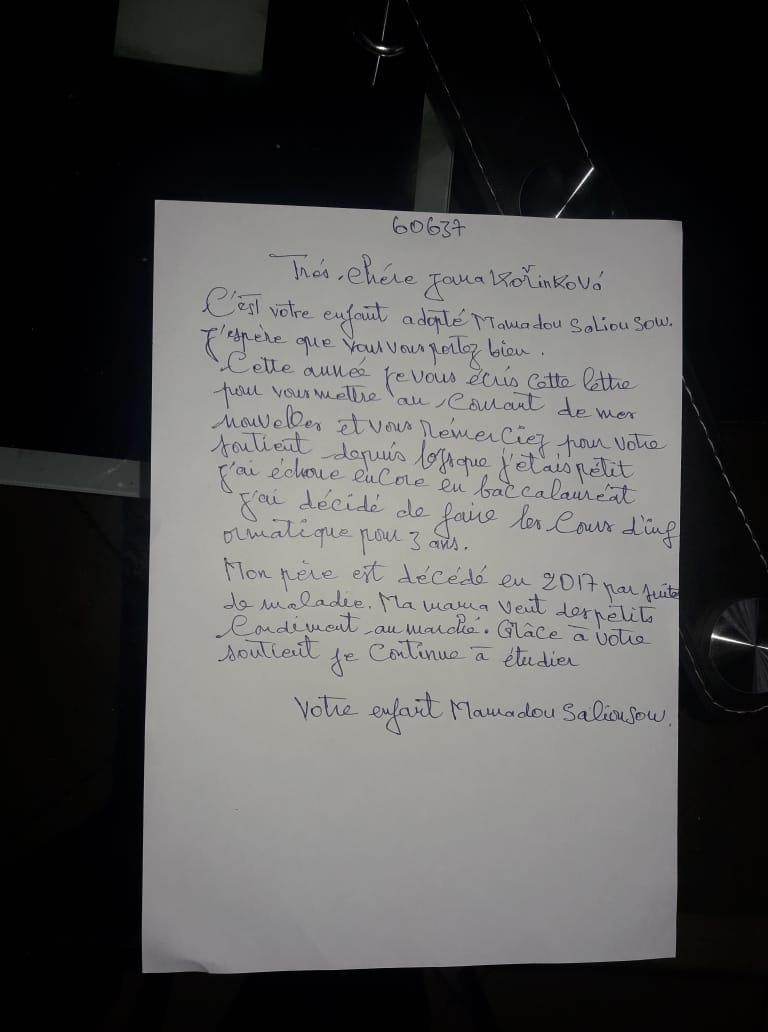 60637
Trés chére Jana Kořinková
C'est votre enfant adopté Mamadou Saliou Sow.
J'espère que vous vous portez bien.
Cette année je vous écris cette lettre
pour vous mettre au courant de mes
nouvelles et vous rémerciez pour votre
soutient depuis lorsque j'etais pétit
j'ai échoue encore en baccalauréat
j'ai décidé de faire les cours d'inf
ormatique pour 3 ans.
Mon père est décédé en 2017 par suite
de maladie. Ma mama vent des pétits
condiment au marché. Glâce à votre
soutient je continue à étudier
Votre enfant Mamadou Saliou Sow.